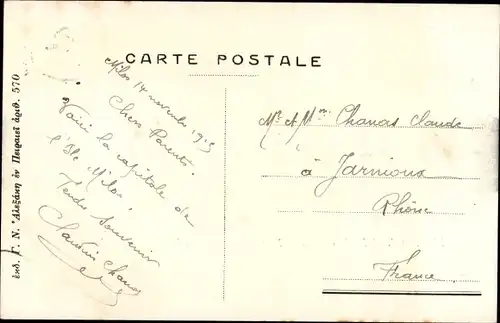 CARTE POSTALE
Milos 14 novembre 1915
Chers Parents
Voici la capitale de
l'Ile Milos
Tendre Souvenir
Claudius Chanas
Mr et Mme Chanas Claude
à Jarnioux
Rhône
France
ἐκδ. Γ. Ν. Ἀλεξάκη ἐν Πειραιεῖ ἀριθ. 570